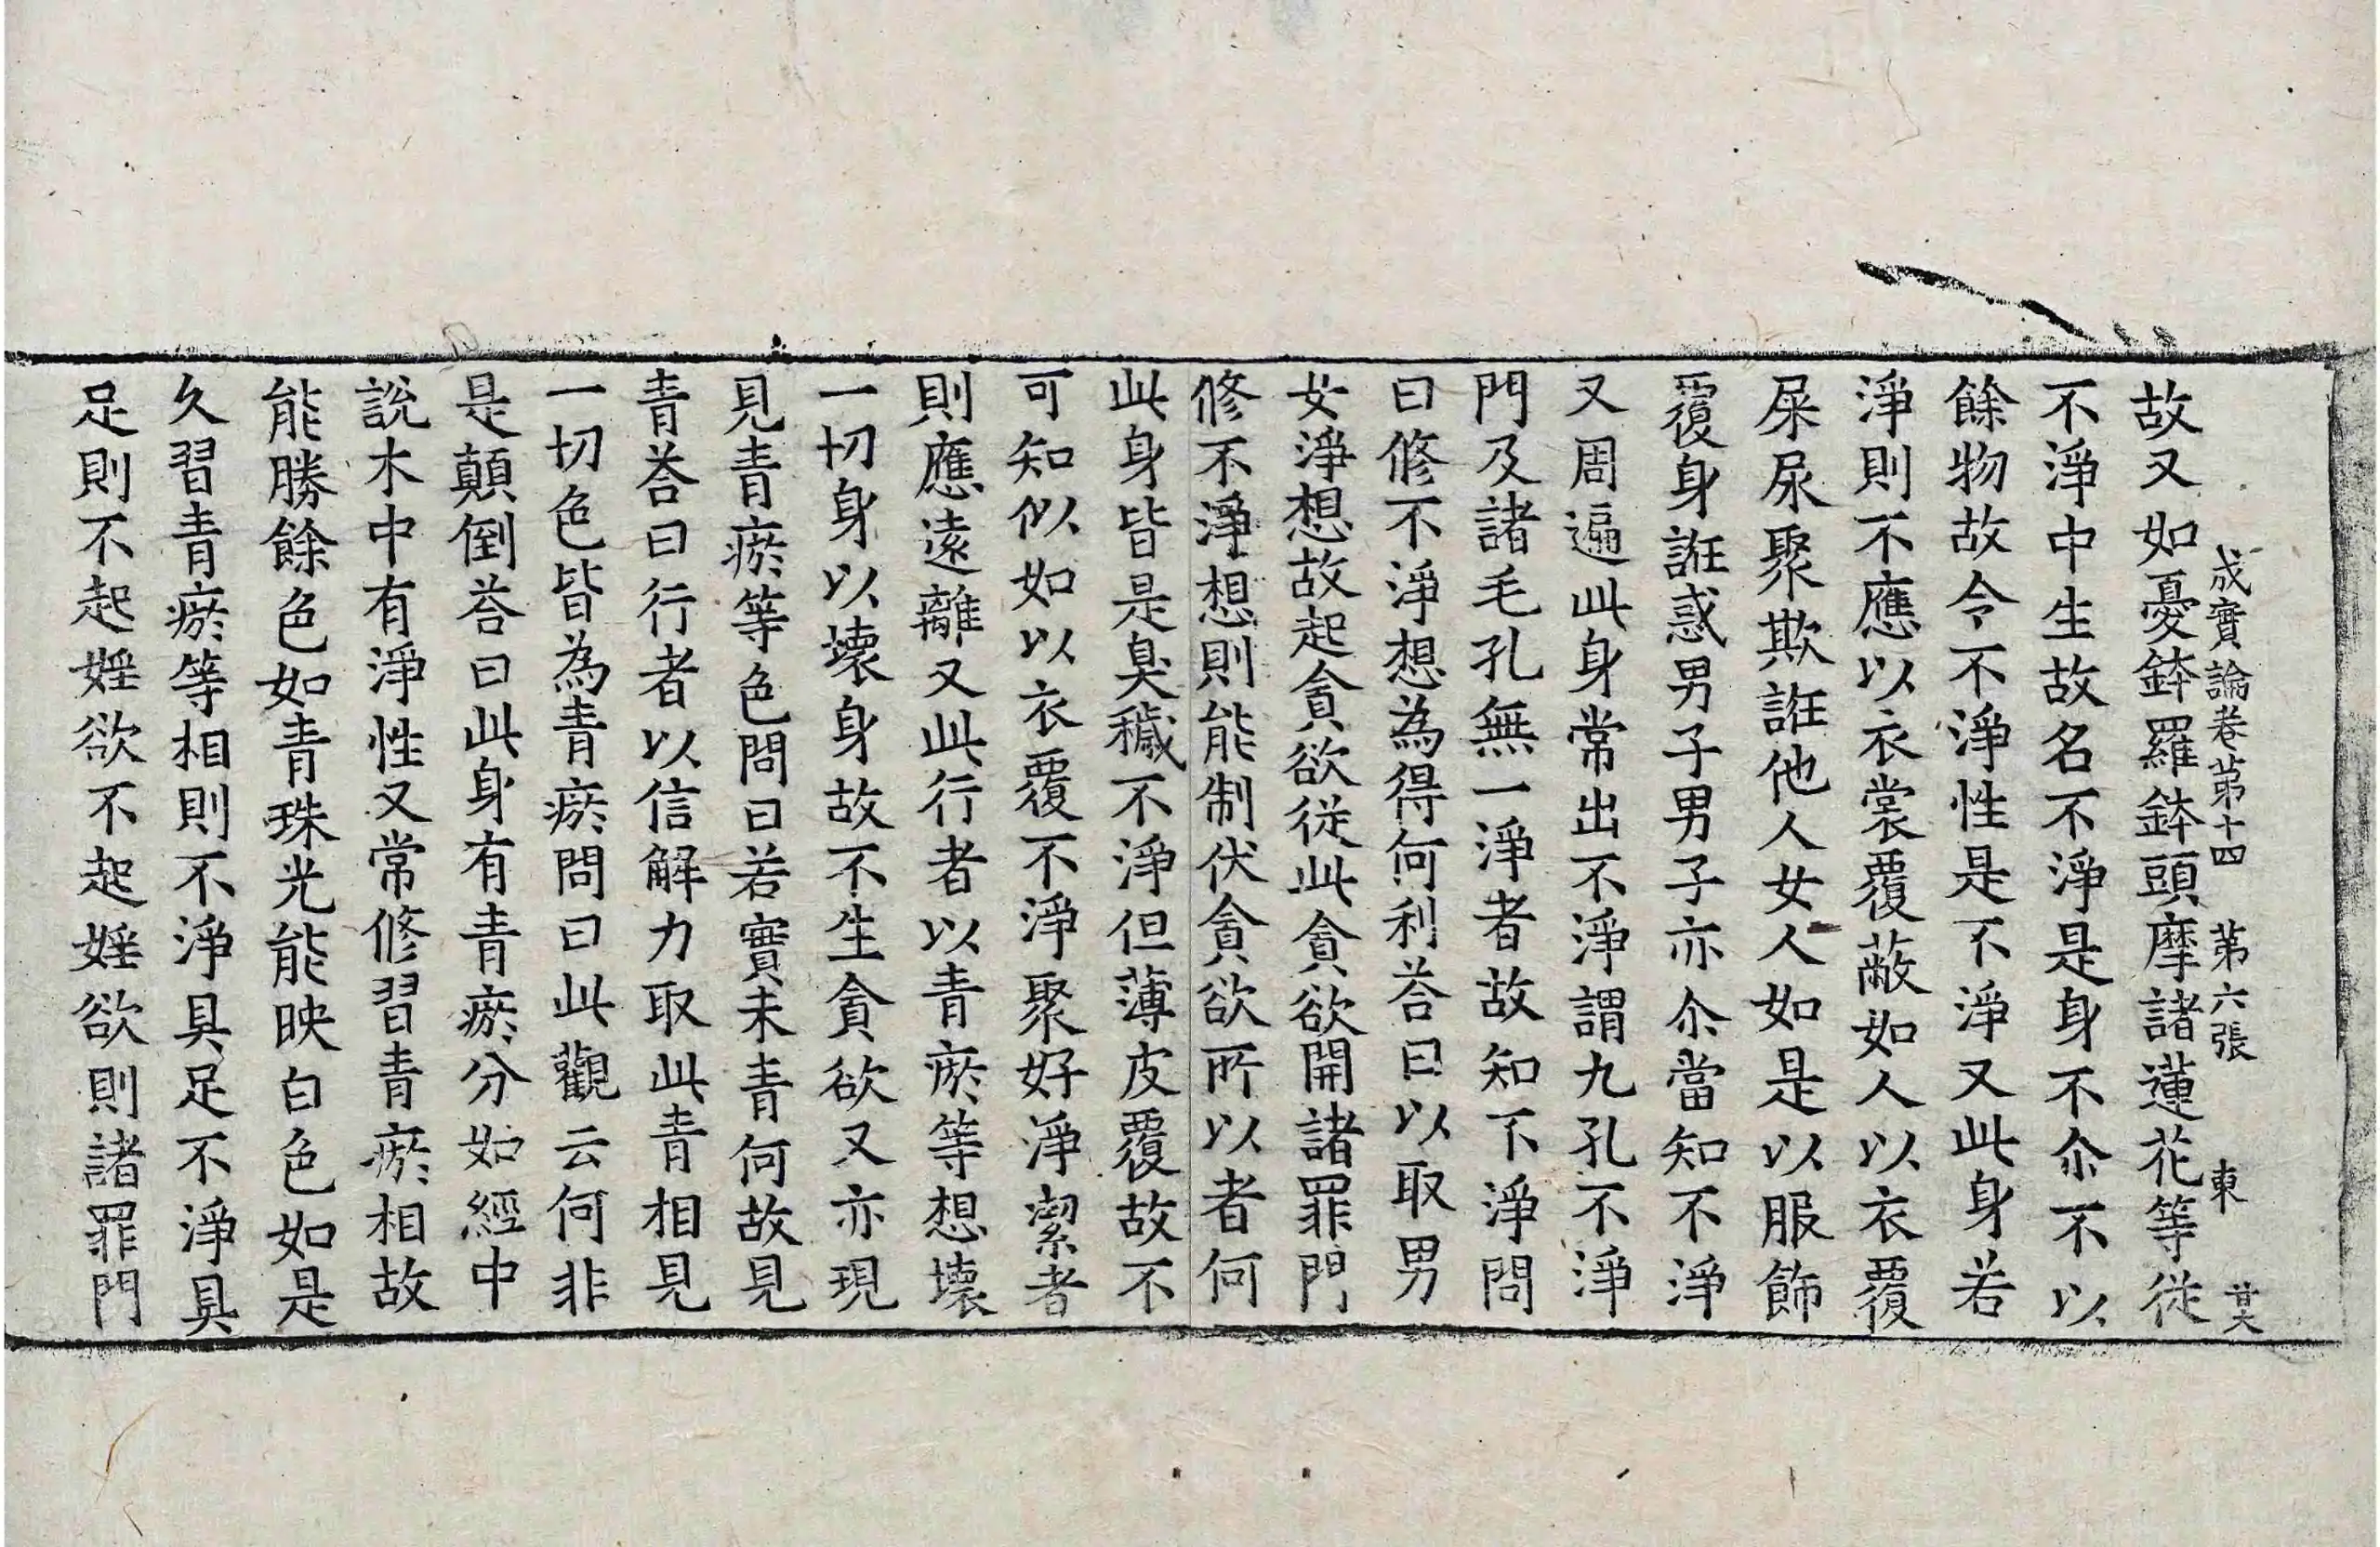 成實論卷第十四 第六張 東
故又如憂鉢羅鉢頭摩諸蓮花等從
不淨中生故名不淨是身不尒不以
餘物故令不淨性是不淨又此身若
淨則不應以衣裳覆蔽如人以衣覆
屎尿聚欺誑他人女人如是以服飾
覆身誑惑男子男子亦尒當知不淨
又周遍此身常出不淨謂九孔不淨
門及諸毛孔無一淨者故知不淨問
曰修不淨想為得何利荅曰以取男
女淨想故起貪欲從此貪欲開諸罪門
修不淨想則能制伏貪欲所以者何
此身皆是臭穢不淨但薄皮覆故不
可知似如以衣覆不淨聚好淨潔者
則應遠離又此行者以青瘀等想壞
一切身以壞身故不生貪欲又亦現
見青瘀等色問曰若實未青何故見
青荅曰行者以信解力取此青相見
一切色皆為青瘀問曰此觀云何非
是顛倒荅曰此身有青瘀分如經中
說木中有淨性又常修習青瘀相故
能勝餘色如青珠光能映白色如是
久習青瘀等相則不淨具足不淨具
足則不起婬欲不起婬欲則諸罪門